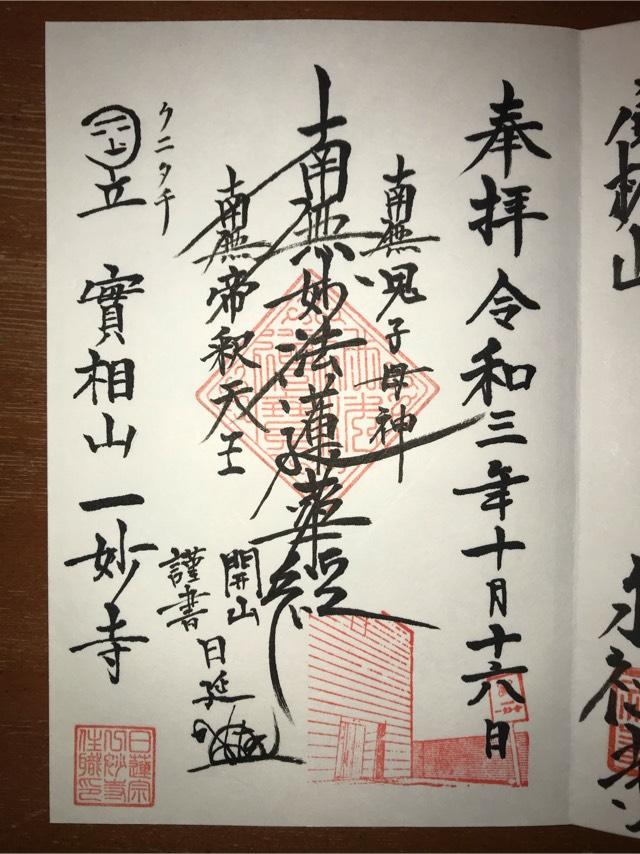 奉拝 令和三年十月十六日
南無鬼子母神
南無妙法蓮華経
南無帝釈天王
開山 日延
謹書
クニタチ
立 實相山 一妙寺
日蓮宗
一妙寺
住職印